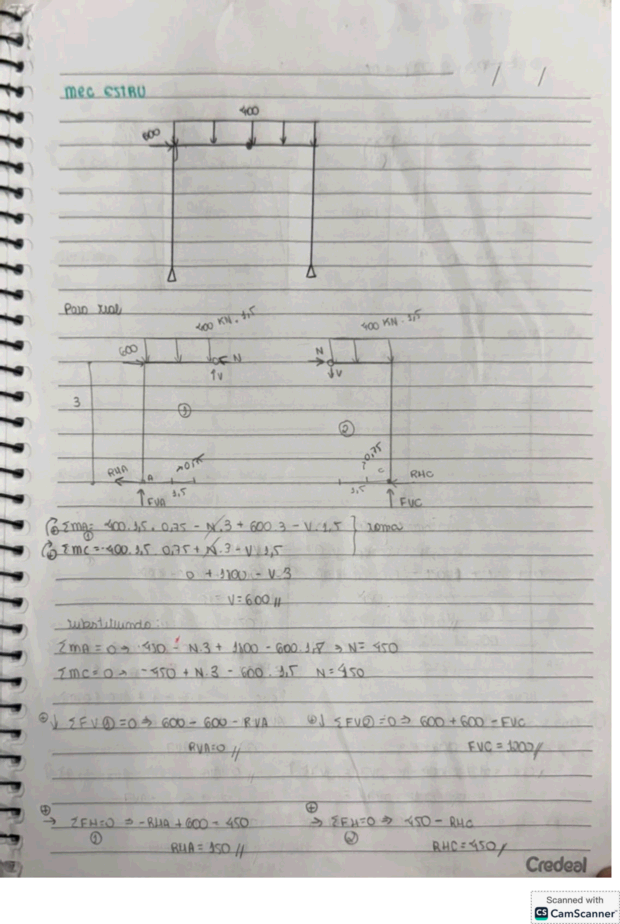 MEC ESTRU
/ /
400
600
400 KN . 1,5
400 KN . 1,5
600
N
N
V
V
3
1
2
RHA
A
1,5
FVA
0,75
1,5
C
RHC
FVC
ΣMA = 400.1,5.0,75 - N.3 + 600.3 - V.1,5
soma
ΣMC = -400.1,5.0,75 + N.3 - V.1,5
0 + 1800 - V.3
V = 600 //
Substituindo:
ΣMA = 0 → 450 - N.3 + 1800 - 600.1,5 → N = 450
ΣMC = 0 → -450 + N.3 - 600.1,5 N = 450
⊕↓ ΣFV① = 0 → 600 - 600 - RVA ⊕↓ ΣFV② = 0 → 600 + 600 - FVC
RVA = 0 // FVC = 1200 //
⊕→ ΣFH = 0 → -RHA + 600 - 450 ⊕→ ΣFH = 0 → 450 - RHC
1 2
RHA = 150 // RHC = 450 /
Credeal
Scanned with
CS CamScanner